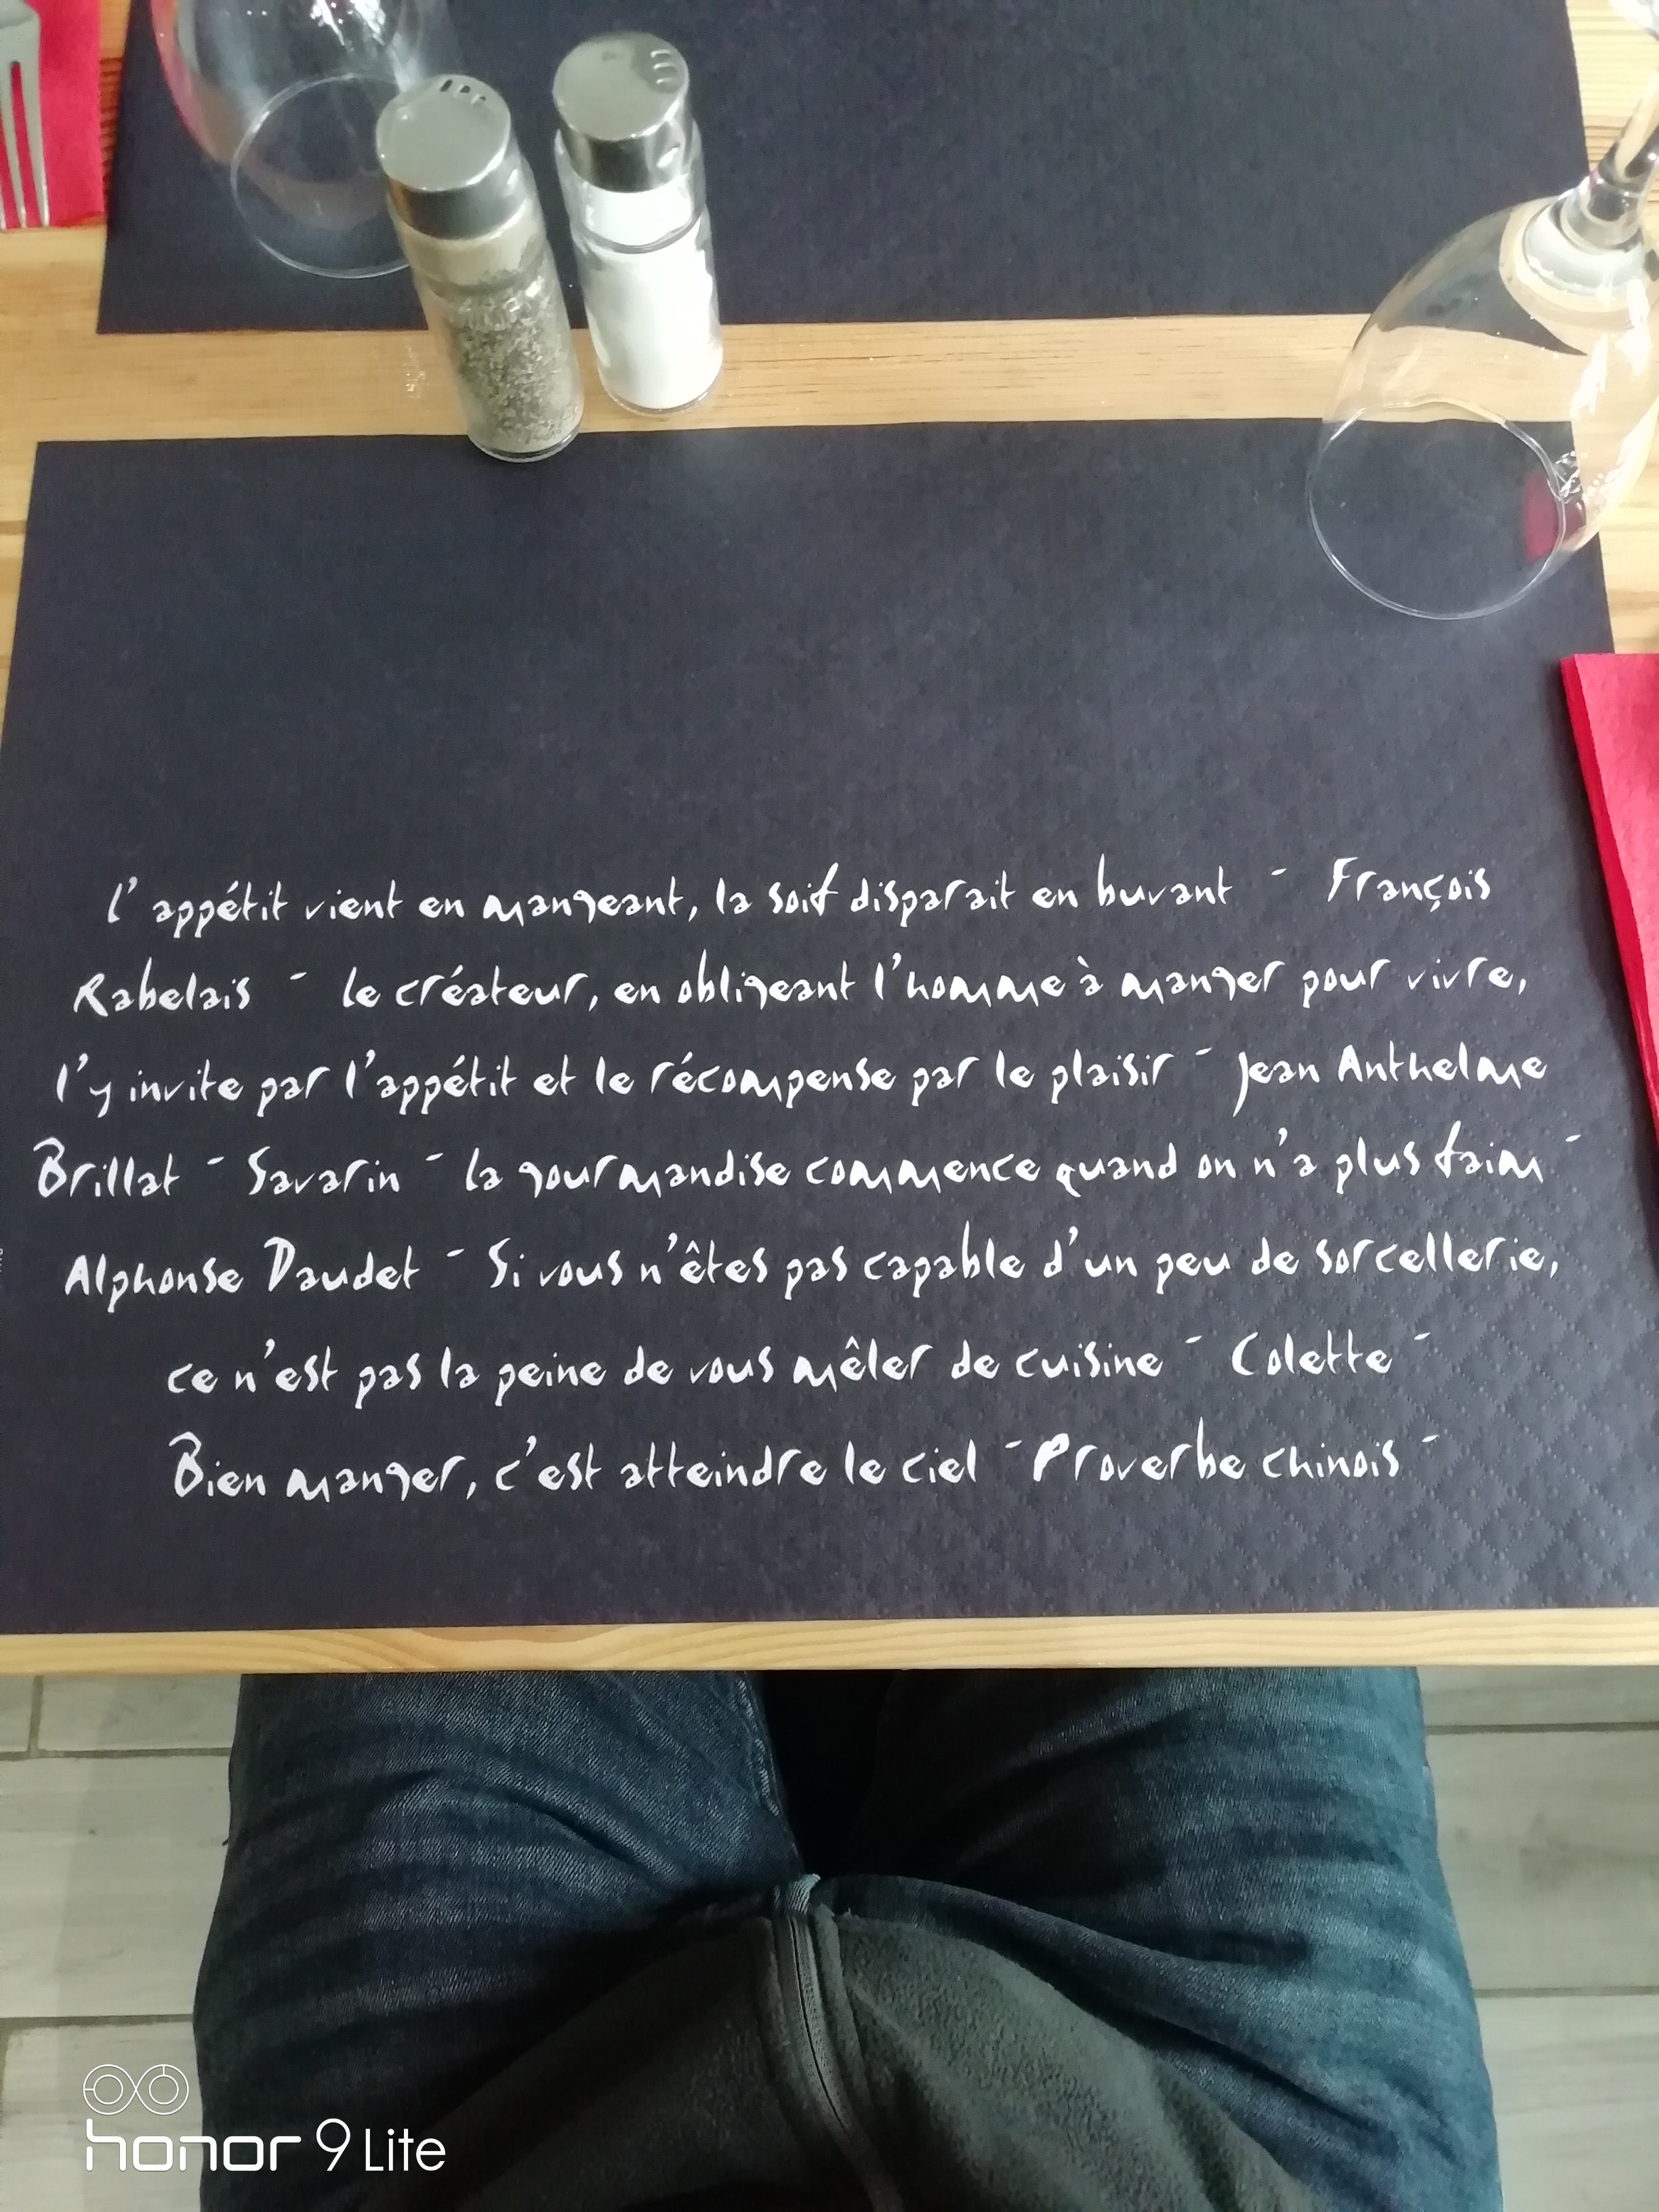 l'appétit vient en mangeant, la soif disparait en buvant - François
Rabelais - le créateur, en obligeant l'homme à manger pour vivre,
l'y invite par l'appétit et le récompense par le plaisir - Jean Anthelme
Brillat - Savarin - la gourmandise commence quand on n'a plus faim -
Alphonse Daudet - Si vous n'êtes pas capable d'un peu de sorcellerie,
ce n'est pas la peine de vous mêler de cuisine - Colette -
Bien manger, c'est atteindre le ciel - Proverbe chinois -
honor 9 Lite